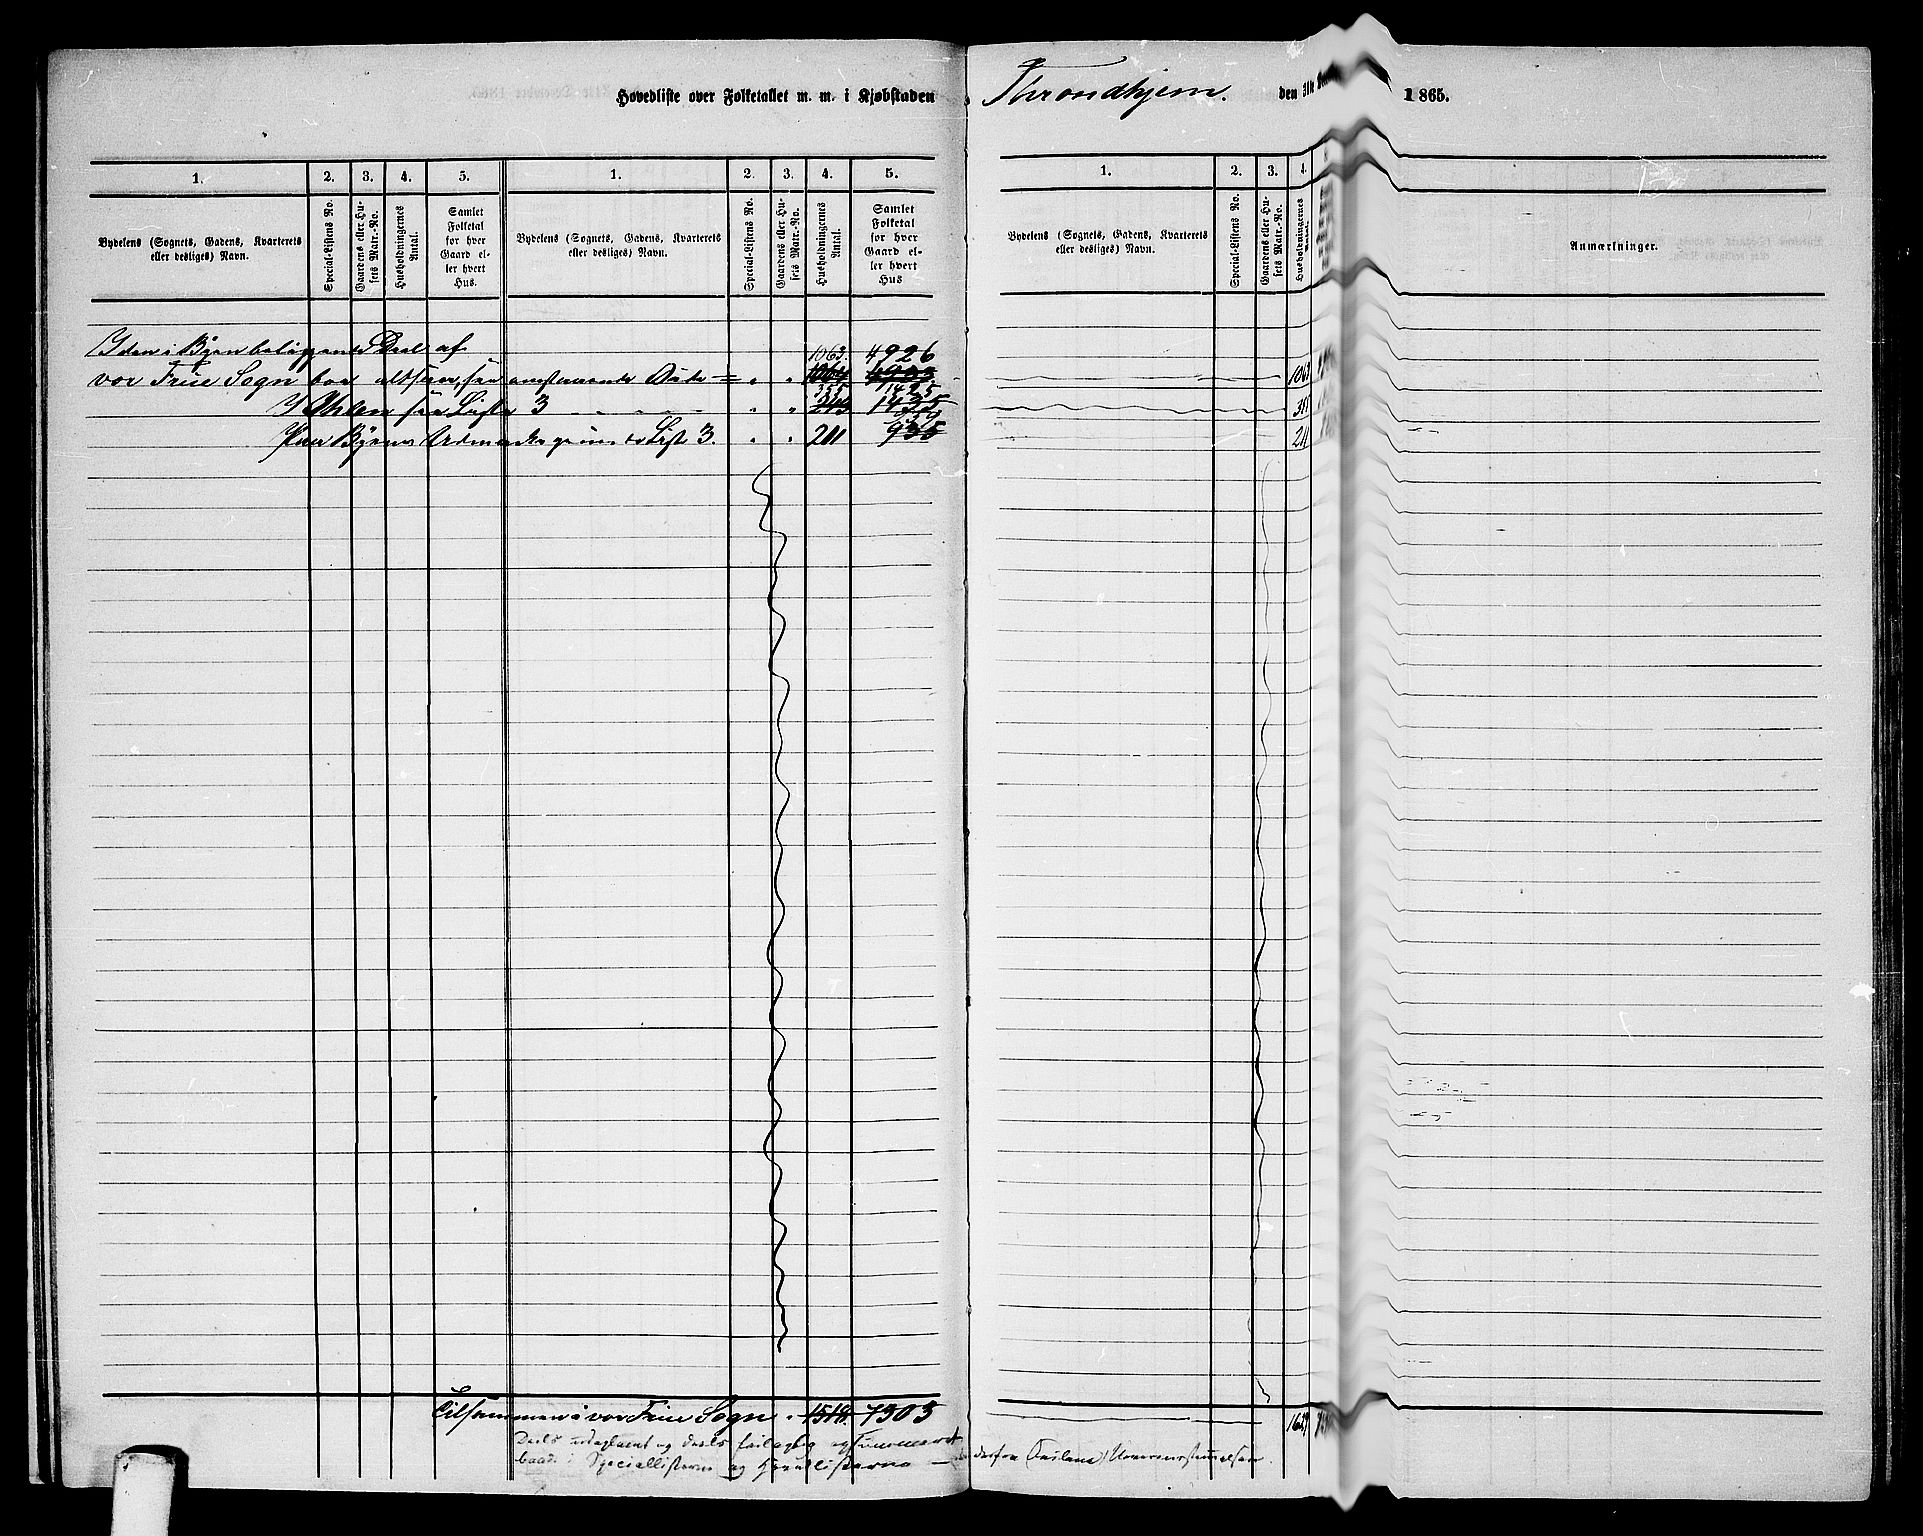 Hovedliste over Folketallet m. m. i Kjøbstaden Throndhjem. den 31te 1865.
1. 2. 3. 4. 5. 1. 2. 3. 4. 5.
Bydelens (Sognets, Gadens, Kvarterets eller desliges) Navn.
Special-Listens No.
Gaardens eller Husets Matr.-No.
Husholdningernes Antal.
Samlet Folketal for hver Gaard eller hvert Hus.
Bydelens (Sognets, Gadens, Kvarterets eller desliges) Navn.
Special-Listens No.
Gaardens eller Husets Matr.-No.
Husholdningernes Antal.
Samlet Folketal for hver Gaard eller hvert Hus
I den i Byen beliggende Deel af 1063. 4926
vor Frue Sogn boe altsaa, fra omstaaende Side = " " 1064
355 1425
I Ihlen fra Liste 3 - - - - " " 1435
959
Paa Byens Udmarksgrund fra Liste 3. " " 211 935
Tilsammen i vor Frue Sogn " 1518. 7303
Deels udeglemt og deels feilagtig opsummeret
baade i Speciallisterne og Hovedlisterne — derfra Uoverensstemmelsen.
1. 2. 3. 4.
Bydelens (Sognets, Gadens, Kvarterets eller desliges) Navn.
Special-Listens No.
Gaardens eller Husets Matr.-No.
Husholdningernes Antal.
Anmærkninger.
1063
355
211
1629